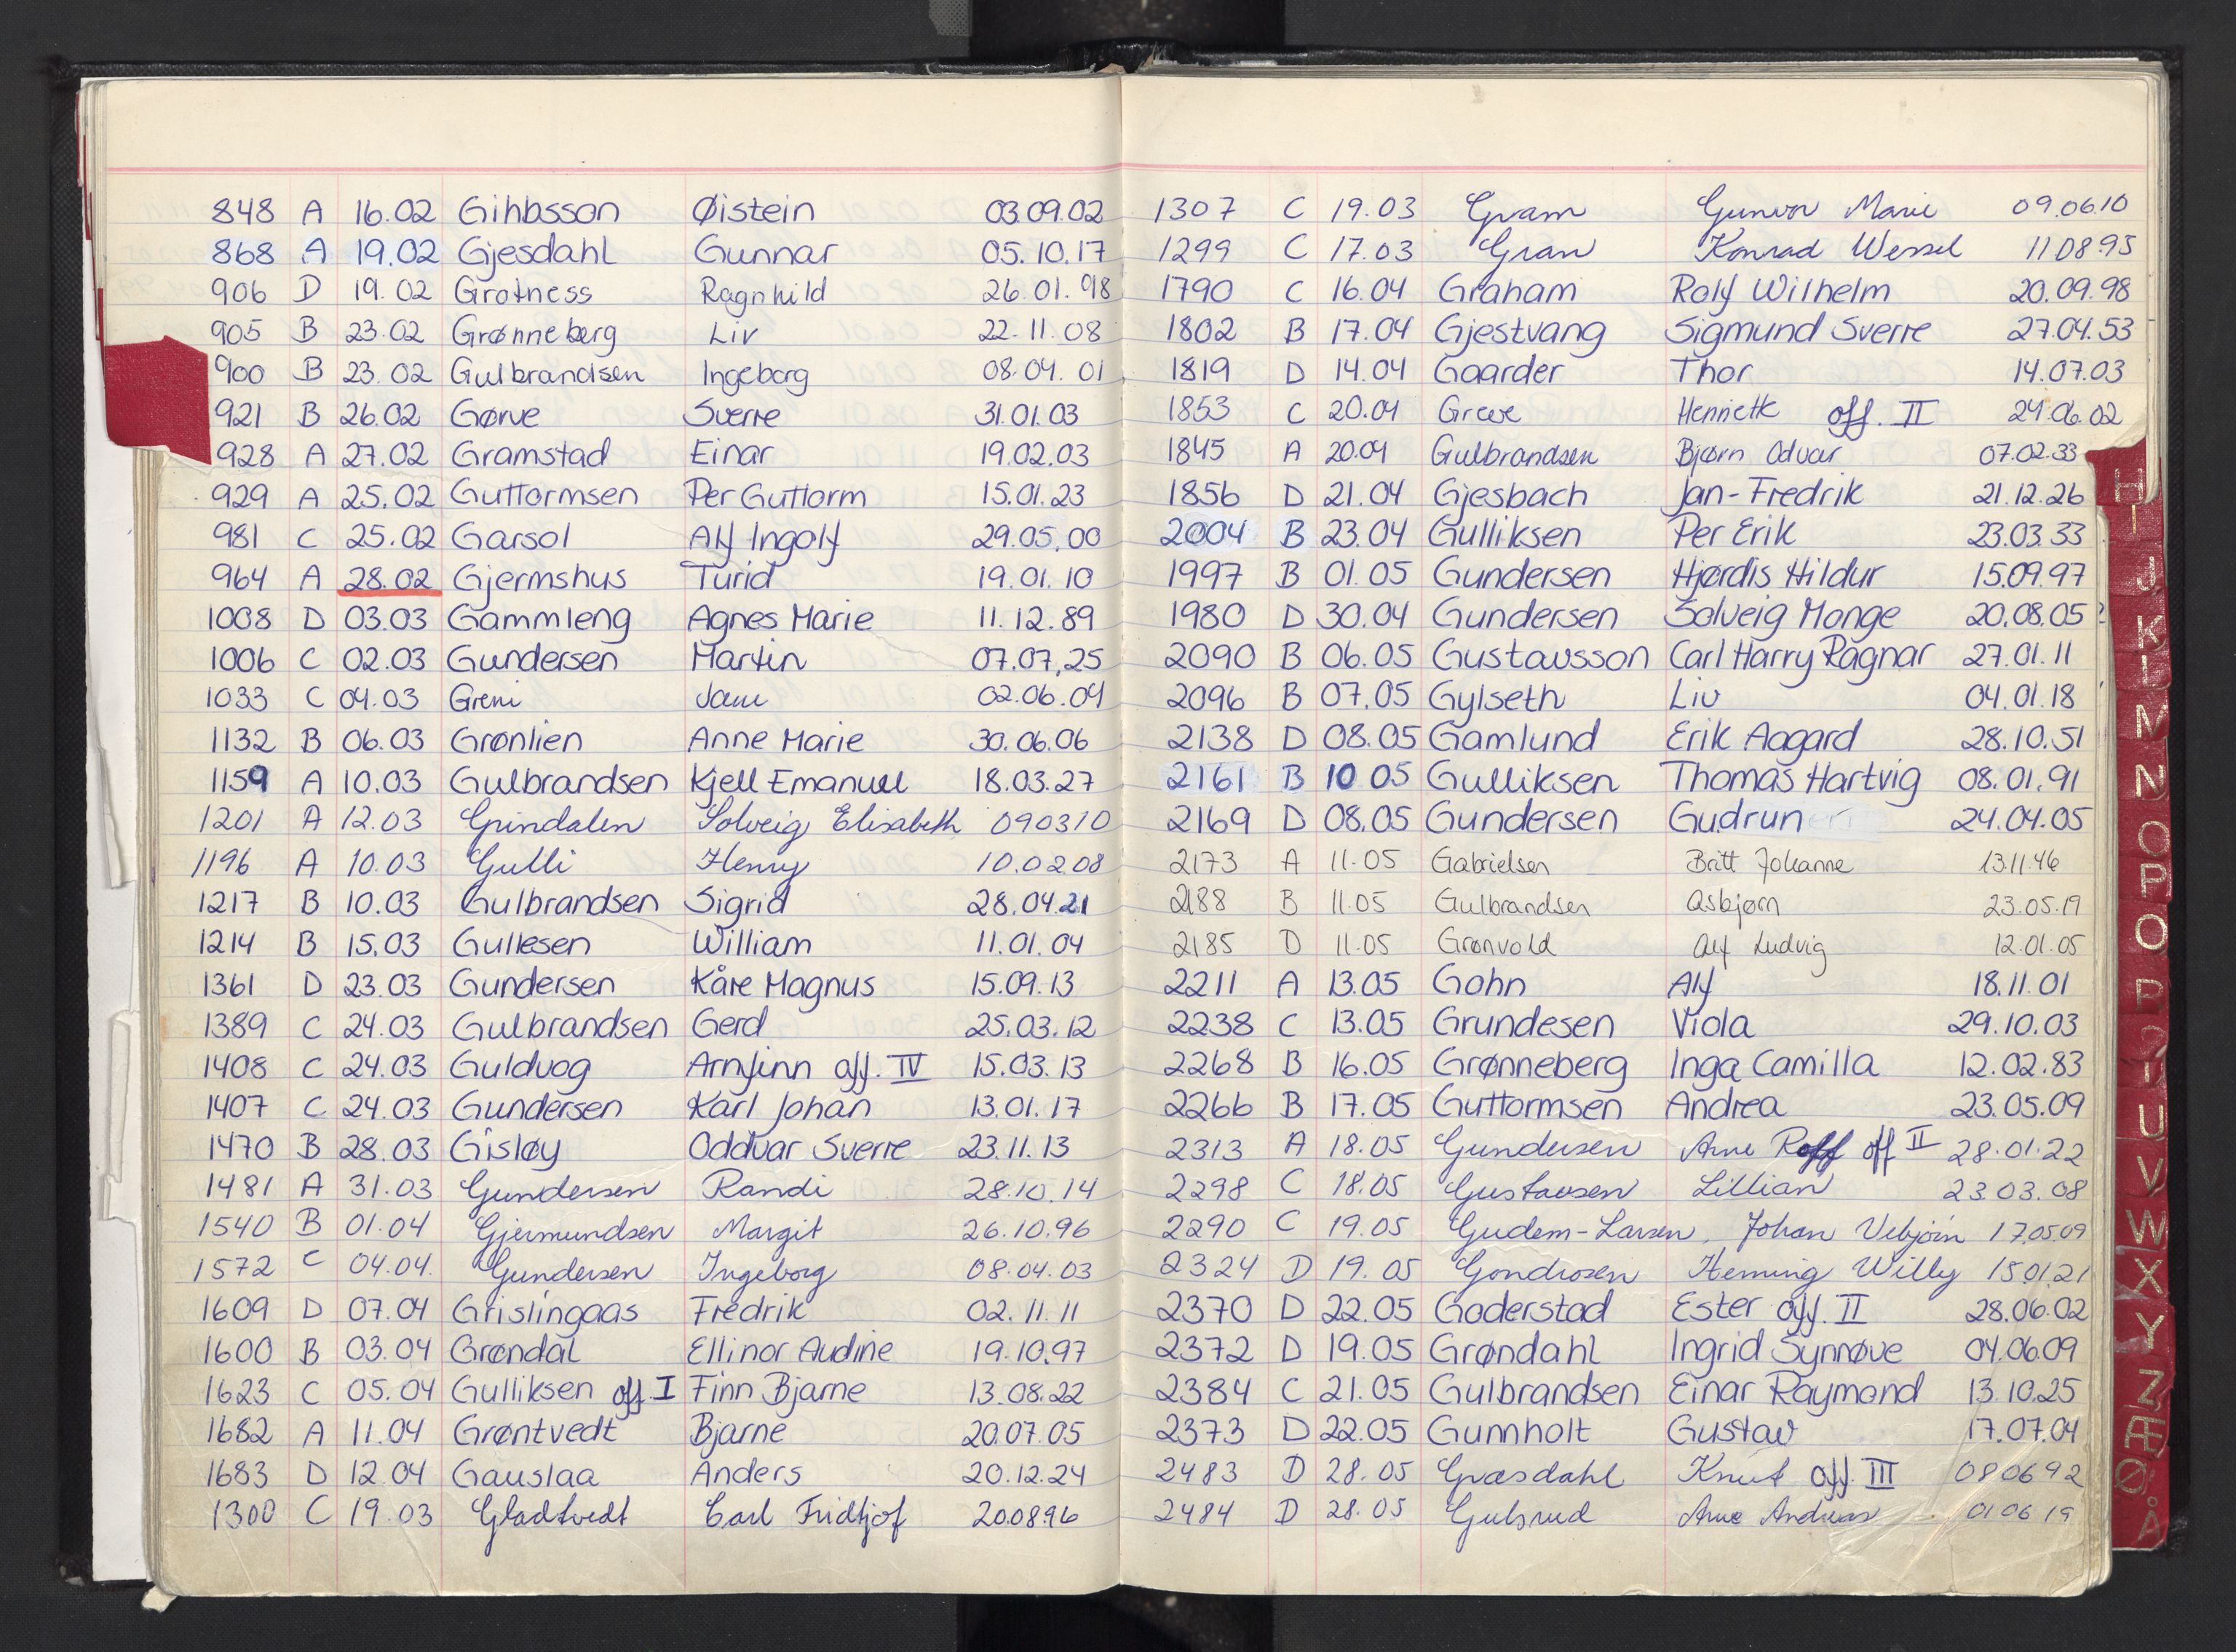 848 A 16.02 Gihbsson Øistein 03.09.02
868 A 19.02 Gjesdahl Gunnar 05.10.17
906 D 19.02 Grotness Ragnhild 26.01.98
905 B 23.02 Grønneberg Liv 22.11.08
900 B 23.02 Gulbrandsen Ingeborg 08.04.01
921 B 26.02 Gørve Sverre 31.01.03
928 A 27.02 Gramstad Einar 19.02.03
929 A 25.02 Guttormsen Per Guttorm 15.01.23
981 C 25.02 Garsol Alf Ingolf 29.05.00
964 A 28.02 Gjermshus Turid 19.01.10
1008 D 03.03 Gammleng Agnes Marie 11.12.89
1006 C 02.03 Gundersen Martin 07.07.25
1033 C 04.03 Greni 02.06.04
1132 B 06.03 Grønlien Anne Marie 30.06.06
1159 A 10.03 Gulbrandsen Kjell Emanuel 18.03.27
1201 A 12.03 Grindalen Solveig Elisabeth 090310
1196 A 10.03 Gulli Henry 10.02.08
1217 B 10.03 Gulbrandsen Sigrid 28.04.21
1214 B 15.03 Gullesen William 11.01.04
1361 D 23.03 Gundersen Kåre Magnus 15.09.13
1389 C 24.03 Gulbrandsen Gerd 25.03.12
1408 C 24.03 Guldvog Arnfinn off. IV 15.03.13
1407 C 24.03 Gundersen Karl Johan 13.01.17
1470 B 28.03 Gisløy Oddvar Sverre 23.11.13
1481 A 31.03 Gundersen Randi 28.10.14
1540 B 01.04 Gjermundsen Margit 26.10.96
1572 C 04.04. Gundersen Ingeborg 08.04.03
1609 D 07.04 Grislingaas Fredrik 02.11.11
1600 B 03.04 Grøndal Ellinor Audine 19.10.97
1623 C 05.04 Gulliksen off. I Finn Bjarne 13.08.22
1682 A 11.04 Grøntvedt Bjarne 20.07.05
1683 D 12.04 Gauslaa Anders 20.12.24
1300 C 19.03 Gladtvedt Carl Fridtjof 20.08.96
1307 C 19.03 Gram Gunvor Marie 09.06.10
1299 C 17.03 Gran Konrad Wessel 11.08.95
1790 C 16.04 Graham Rolf Wilhelm 20.09.98
1802 B 17.04 Gjestvang Sigmund Sverre 27.04.53
1819 D 14.04 Gaarder Thor 14.07.03
1853 C 20.04 Greve off. II 24.06.02
1845 A 20.04 Gulbrandsen Bjørn Odvar 07.02.33
1856 D 21.04 Gjesbach Jan-Fredrik 21.12.26
2004 B 23.04 Gulliksen Per Erik 23.03.33
1997 B 01.05 Gundersen Hjørdis Hildur 15.09.97
1980 D 30.04 Gundersen Solveig Monge 20.08.05
2090 B 06.05 Gustavsson Carl Harry Ragnar 27.01.11
2096 B 07.05 Gylseth Liv 04.01.18
2138 D 08.05 Gamlund Erik Aagard 28.10.51
2161 B 10 05 Gulliksen Thomas Hartvig 08.01.91
2169 D 08.05 Gundersen Gudrun 24.04.05
2173 A 11.05 Gabrielsen Britt Johanne 13.11.46
2188 B 11.05 Gulbrandsen Asbjørn 23.05.19
2185 D 11.05 Grønvold Alf Ludvig 12.01.05
2211 A 13.05 Gohn Alf 18.11.01
2238 C 13.05 Grundesen Viola 29.10.03
2268 B 16.05 Grønneberg Inga Camilla 12.02.83
2266 B 17.05 Guttormsen Andrea 23.05.09
2313 A 18.05 Gundersen Arne off II 28.01.22
2298 C 18.05 Gustavsen Lillian 23.03.08
2290 C 19.05 Gudem-Larsen, Johan Vebjørn 17.05.09
2324 D 19.05 Gondrosen Heming Willy 15.01.21
2370 D 22.05 Goderstad Ester off. II 28.06.02
2372 D 19.05 Grøndahl Ingrid Synnøve 04.06.09
2384 C 21.05 Gulbrandsen Einar Raymond 13.10.25
2373 D 22.05 Gumholt Gustav 17.07.04
2483 D 28.05 Græsdahl Knut off. III 080692
2484 D 28.05 Gulsrud Arne Andreas 01 06 19
H
I
J
K
L
M
N
O
P
O
P
U
V
W
X
Y
Z
Æ
Ø
Å